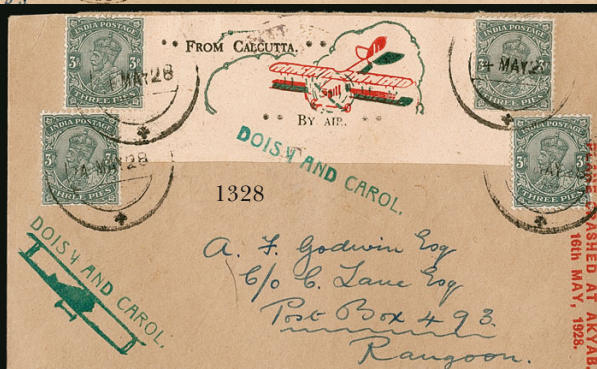 INDIA POSTAGE
3P 3P
THREE PIES
MAY 28
FROM CALCUTTA.
BY AIR.
INDIA POSTAGE
3P
THREE PIES
MAY 2
INDIA POSTAGE
3P 3P
THREE PIES
MAY 28
INDIA POSTAGE
3P 3P
THREE PIES
DOISY AND CAROL.
1328
DOISY AND CAROL.
A. F. Godwin Esq
C/o C. Lane Esq
Post Box 493.
Rangoon.
PLANE CRASHED AT AKYAB,
16th MAY, 1928.